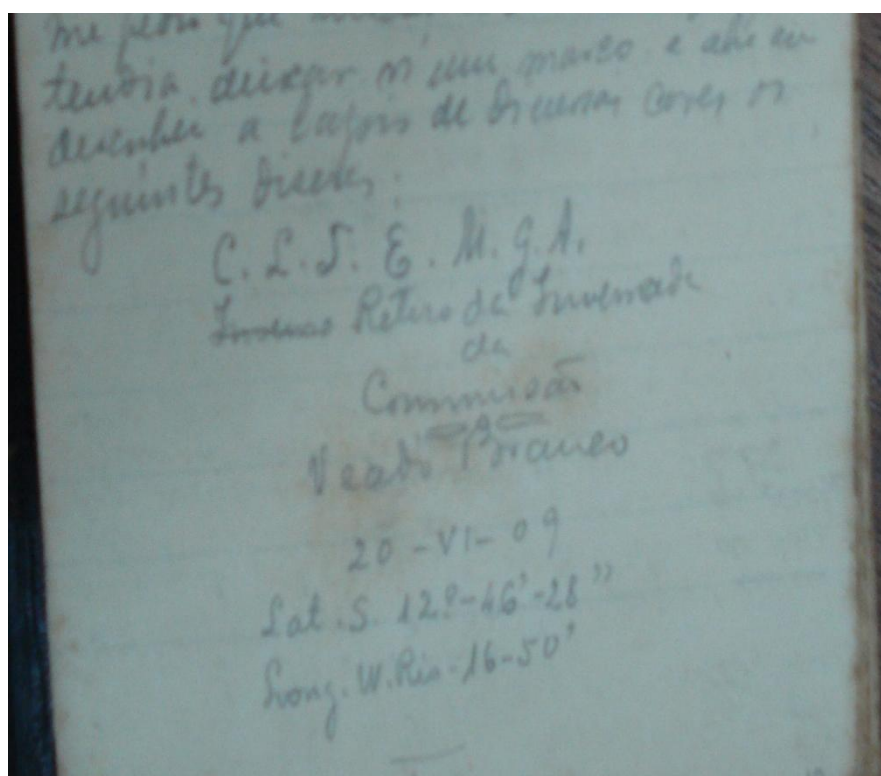 me pedio que
tendia deixar n'um marco e ahi eu
desenhei a lapis de diversas cores os
seguintes dizeres:
C. L. T. E. M. G. A.
Retiro da Invernada
da
Commissão
Veado Branco
20-VI-09
Lat. S. 12º-46'-28"
Long. W. Rio-16-50'